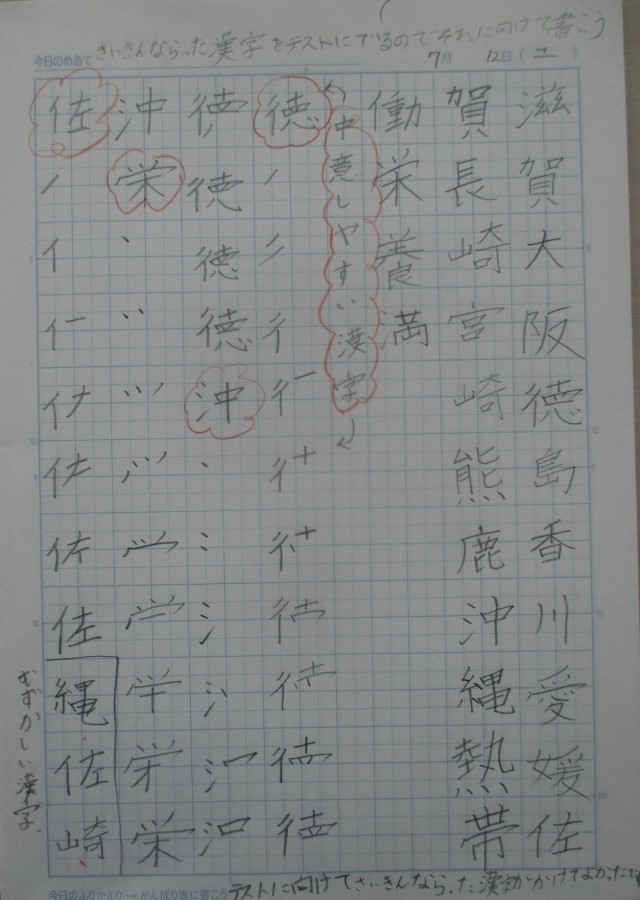 今日のめあて さいきんならった漢字をテストにでるのでそれに向けて書こう
7月 12日(土)
滋賀大阪徳島香川愛媛佐
賀長崎宮崎熊鹿沖縄熱帯
働栄養満
中意しやすい漢字
徳
徳徳徳徳沖
沖栄
佐
佐
縄佐崎
むずかしい漢字
今日のふりかえり→がんばり表に書こう
テストに向けてさいきんならった漢字がかけてよかったです